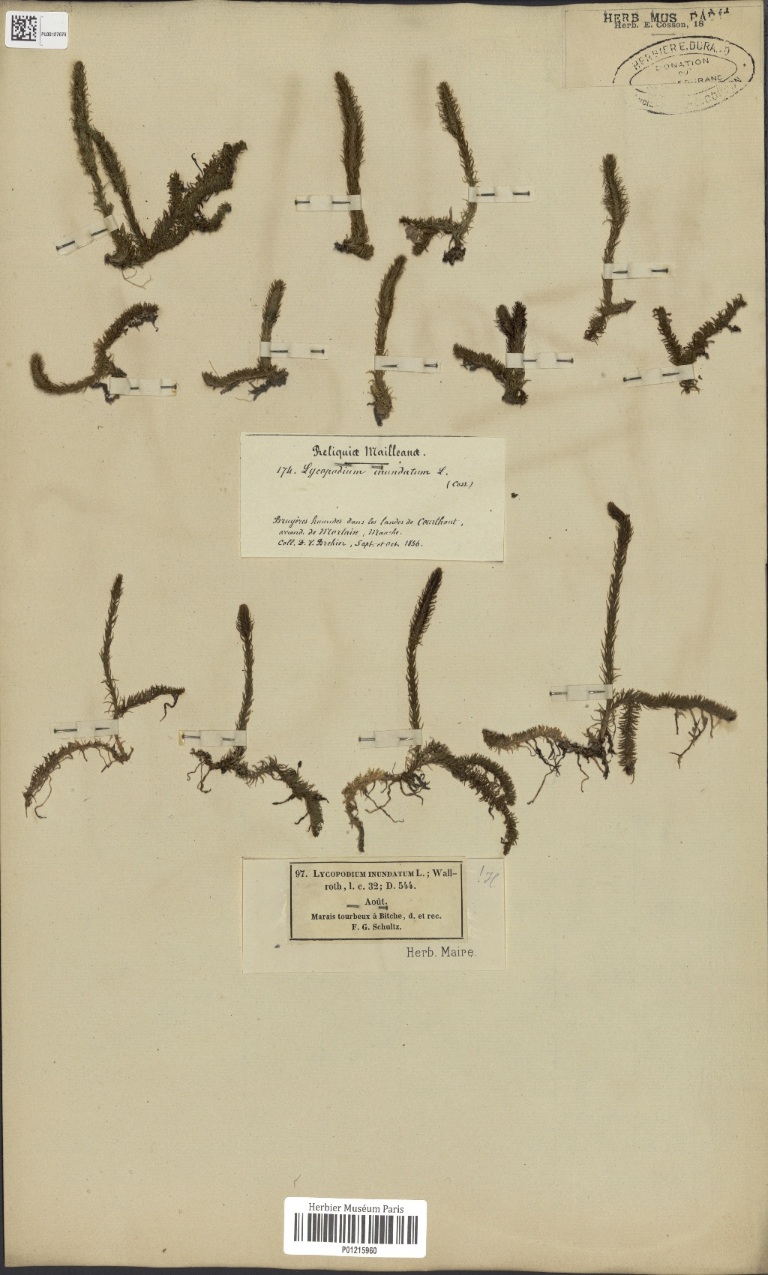 HERB MUS PARIS
Herb. E. Cosson, 18
HERBIER E. DURAND
DONATION
Reliquiæ Mailleanæ.
174. Lycopodium inundatum L.
(Coss.)
Bruyères humides dans les landes de
arrond. de Mortain, Manche.
Sept. et Oct. 1856.
97. LYCOPODIUM INUNDATUM L.; Wall-
roth, l. c. 32; D. 544.
— Août.
Marais tourbeux à Bitche, d. et rec.
F. G. Schultz.
Herb. Maire
Herbier Muséum Paris
P01215960